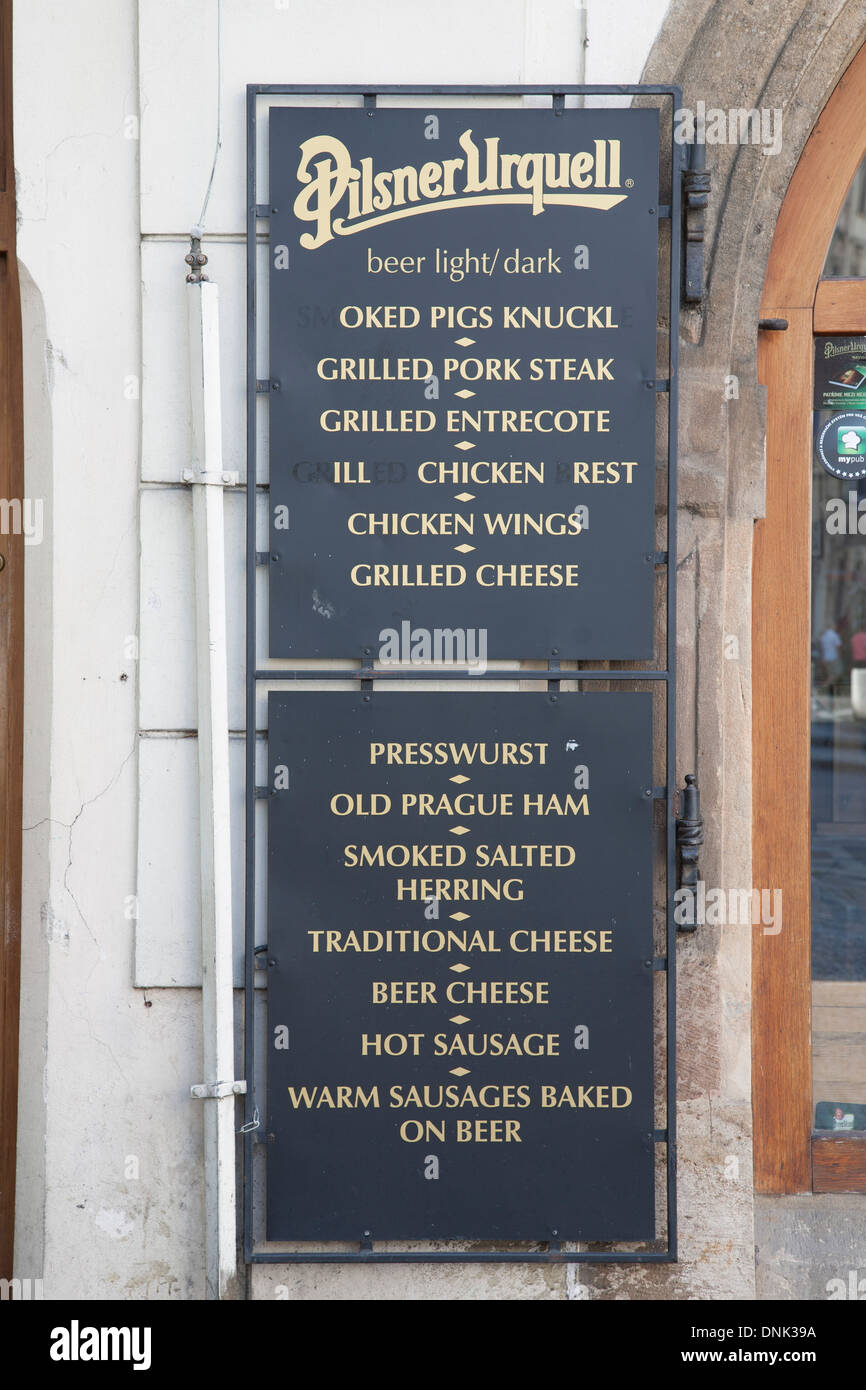 Pilsner Urquell®
beer light/dark
SMOKED PIGS KNUCKLE
GRILLED PORK STEAK
GRILLED ENTRECOTE
GRILLED CHICKEN BREST
CHICKEN WINGS
GRILLED CHEESE
PRESSWURST
OLD PRAGUE HAM
SMOKED SALTED
HERRING
TRADITIONAL CHEESE
BEER CHEESE
HOT SAUSAGE
WARM SAUSAGES BAKED
ON BEER
mypub
alamy
Image ID: DNK39A
www.alamy.com